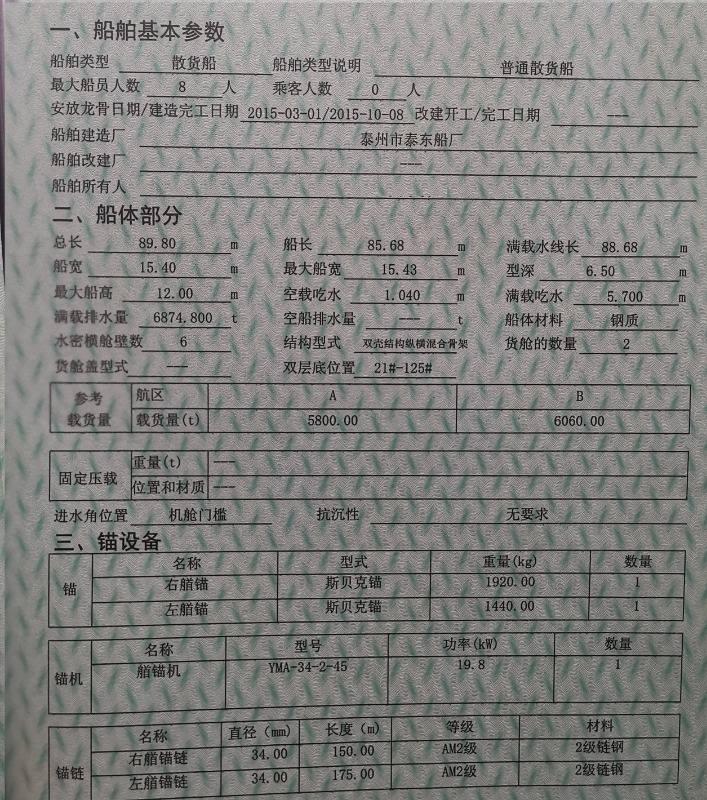 一、船舶基本参数
船舶类型 散货船 船舶类型说明 普通散货船
最大船员人数 8 人 乘客人数 0 人
安放龙骨日期/建造完工日期 2015-03-01/2015-10-08 改建开工/完工日期 ---
船舶建造厂 泰州市泰东船厂
船舶改建厂 ---
船舶所有人
二、船体部分
总长 89.80 m 船长 85.68 m 满载水线长 88.68 m
船宽 15.40 m 最大船宽 15.43 m 型深 6.50 m
最大船高 12.00 m 空载吃水 1.040 m 满载吃水 5.700 m
满载排水量 6874.800 t 空船排水量 --- t 船体材料 钢质
水密横舱壁数 6 结构型式 双壳结构纵横混合骨架 货舱的数量 2
货舱盖型式 --- 双层底位置 21#-125#
参考载货量 航区 A B
载货量(t) 5800.00 6060.00
固定压载 重量(t) ---
位置和材质 ---
进水角位置 机舱门槛 抗沉性 无要求
三、锚设备
锚 名称 型式 重量(kg) 数量
右艏锚 斯贝克锚 1920.00 1
左艏锚 斯贝克锚 1440.00 1
锚机 名称 型号 功率(kW) 数量
艏锚机 YMA-34-2-45 19.8 1
锚链 名称 直径（mm) 长度（m) 等级 材料
右艏锚链 34.00 150.00 AM2级 2级链钢
左艏锚链 34.00 175.00 AM2级 2级链钢